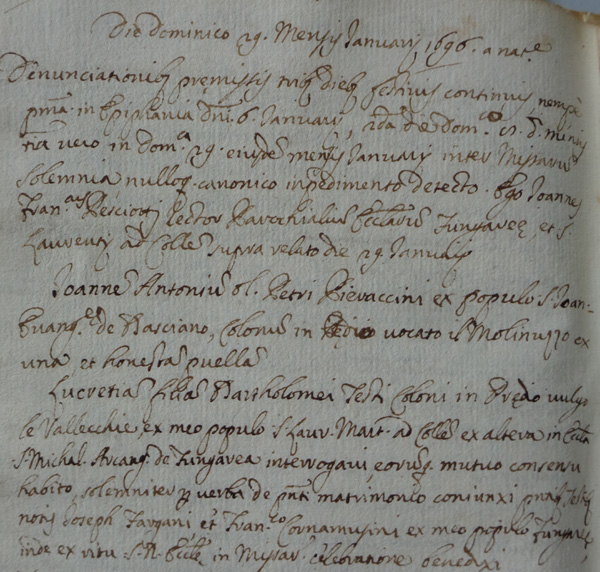 Die Dominico 29. Mensis Januarij 1696. a nat.e
Denunciationib9 premissis trib9 dieb9 festivis continuis nempe
pma in Epiphania Dni 6. Januarij, 2da die dom.co d. mensis
tia vero in dom.ca 29. eiusde mensis Januarij inter Missaru
solemnia nulloq. canonico inpedimento detecto. Ego Joannes
Fran.cus Rector Parochialiu Eccliaru Fungareę et S.
Laurentij ad Colle supra relato die 29 Januarij
Joanne Antoniu ol. Petri Pievaccini ex populo S. Joan-
Evang.e de Basciano, Colonu in Predio vocato il Molinuzzo ex
una et honesta puella
Lucretia filia Bartholomei Testi Coloni in Predio vulgo
le Vallecchie ex meo populo S. Laur. Mart. ad Colle ex altera in Eccla
S. Michal. Arcang. de Fungarea interrogavi, eoruq. mutuo consensu
habito, solemniter p verba de pnti matrimonio coniunxi pntib9 Testib9
notis Joseph Fargani et Fran.co Cornamusini ex meo populo Fungareę
inde ex ritu S. R. Eccle in Missar. celebratione benedixi